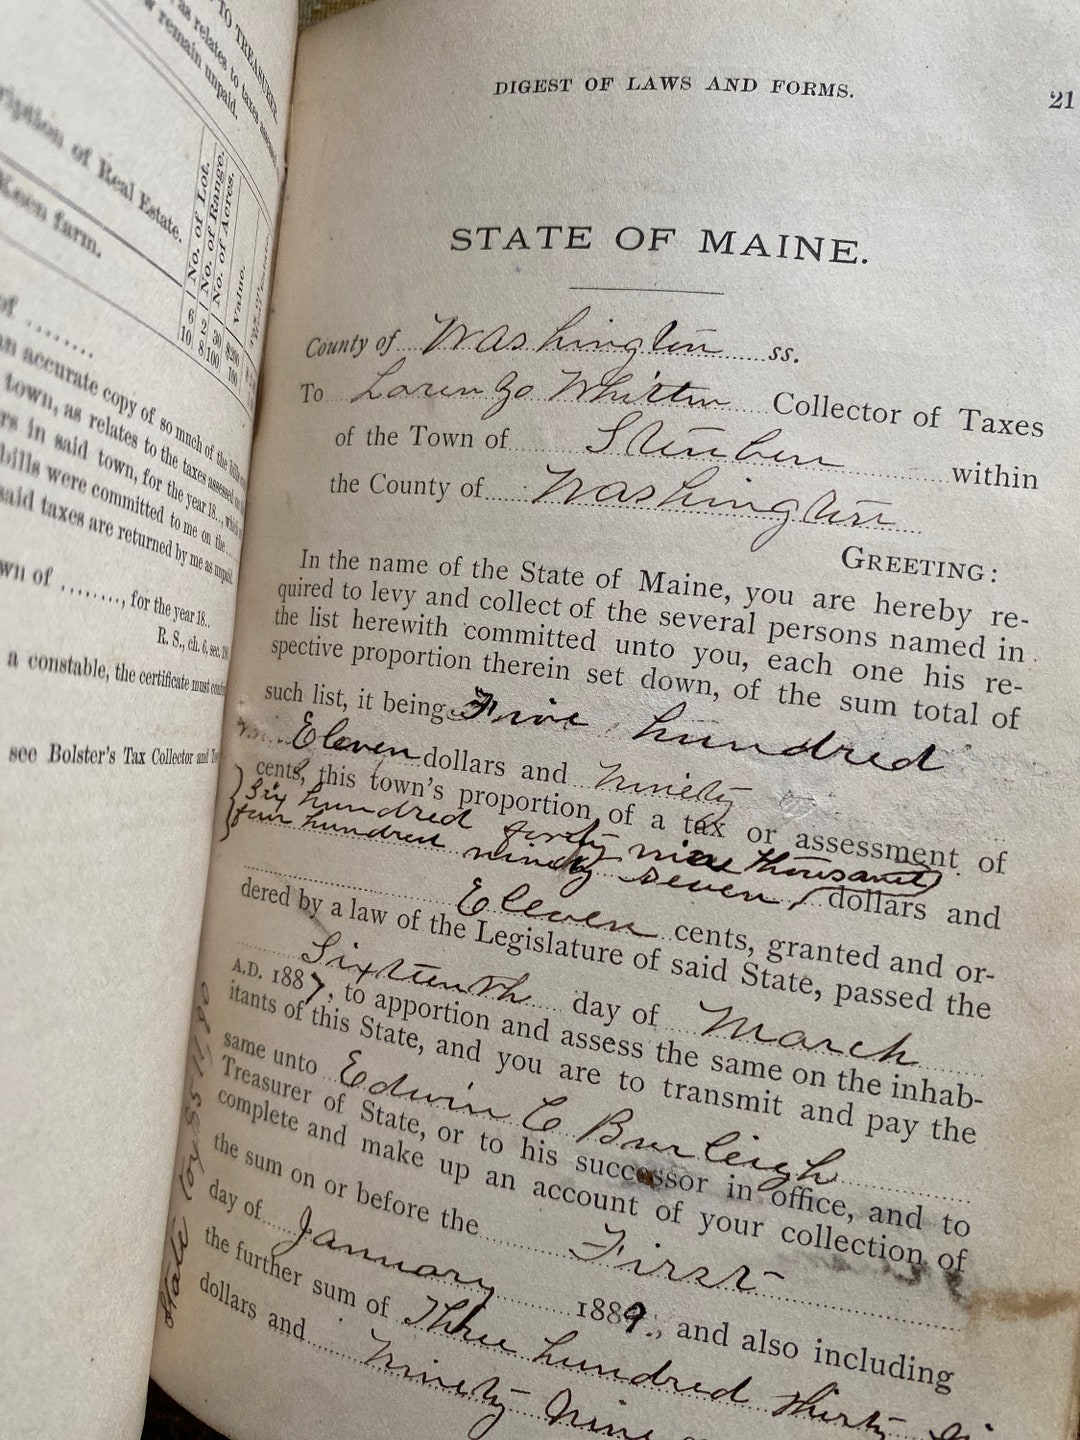 TO TREASURER.
as relates to taxes assessed
remain unpaid.
ription of Real Estate.
No. of Lot.
No. of Range.
No. of Acres.
Value.
Keen farm.
6 2 30 $200
10 8 100 100
of ........
an accurate copy of so much of the bills
town, as relates to the taxes assessed on
rs in said town, for the year 18..,
bills were committed to me on the
said taxes are returned by me as unpaid.
wn of ........, for the year 18..
R. S., ch. 6, sec.
a constable, the certificate must
see Bolster's Tax Collector and
DIGEST OF LAWS AND FORMS. 21
STATE OF MAINE.
County of Washington ss.
To Lorenzo Whitten Collector of Taxes
of the Town of Steuben within
the County of Washington
GREETING:
In the name of the State of Maine, you are hereby re-
quired to levy and collect of the several persons named in
the list herewith committed unto you, each one his re-
spective proportion therein set down, of the sum total of
such list, it being Five hundred
Eleven dollars and ninety
cents, this town's proportion of a tax or assessment of
six hundred forty nine thousand
four hundred ninety seven, dollars and
Eleven cents, granted and or-
dered by a law of the Legislature of said State, passed the
Sixteenth day of March
A.D. 1887, to apportion and assess the same on the inhab-
itants of this State, and you are to transmit and pay the
same unto Edwin C Burleigh
Treasurer of State, or to his successor in office, and to
complete and make up an account of your collection of
the sum on or before the First
day of January 1889., and also including
the further sum of Three hundred thirty
dollars and Ninety Nine
State tax